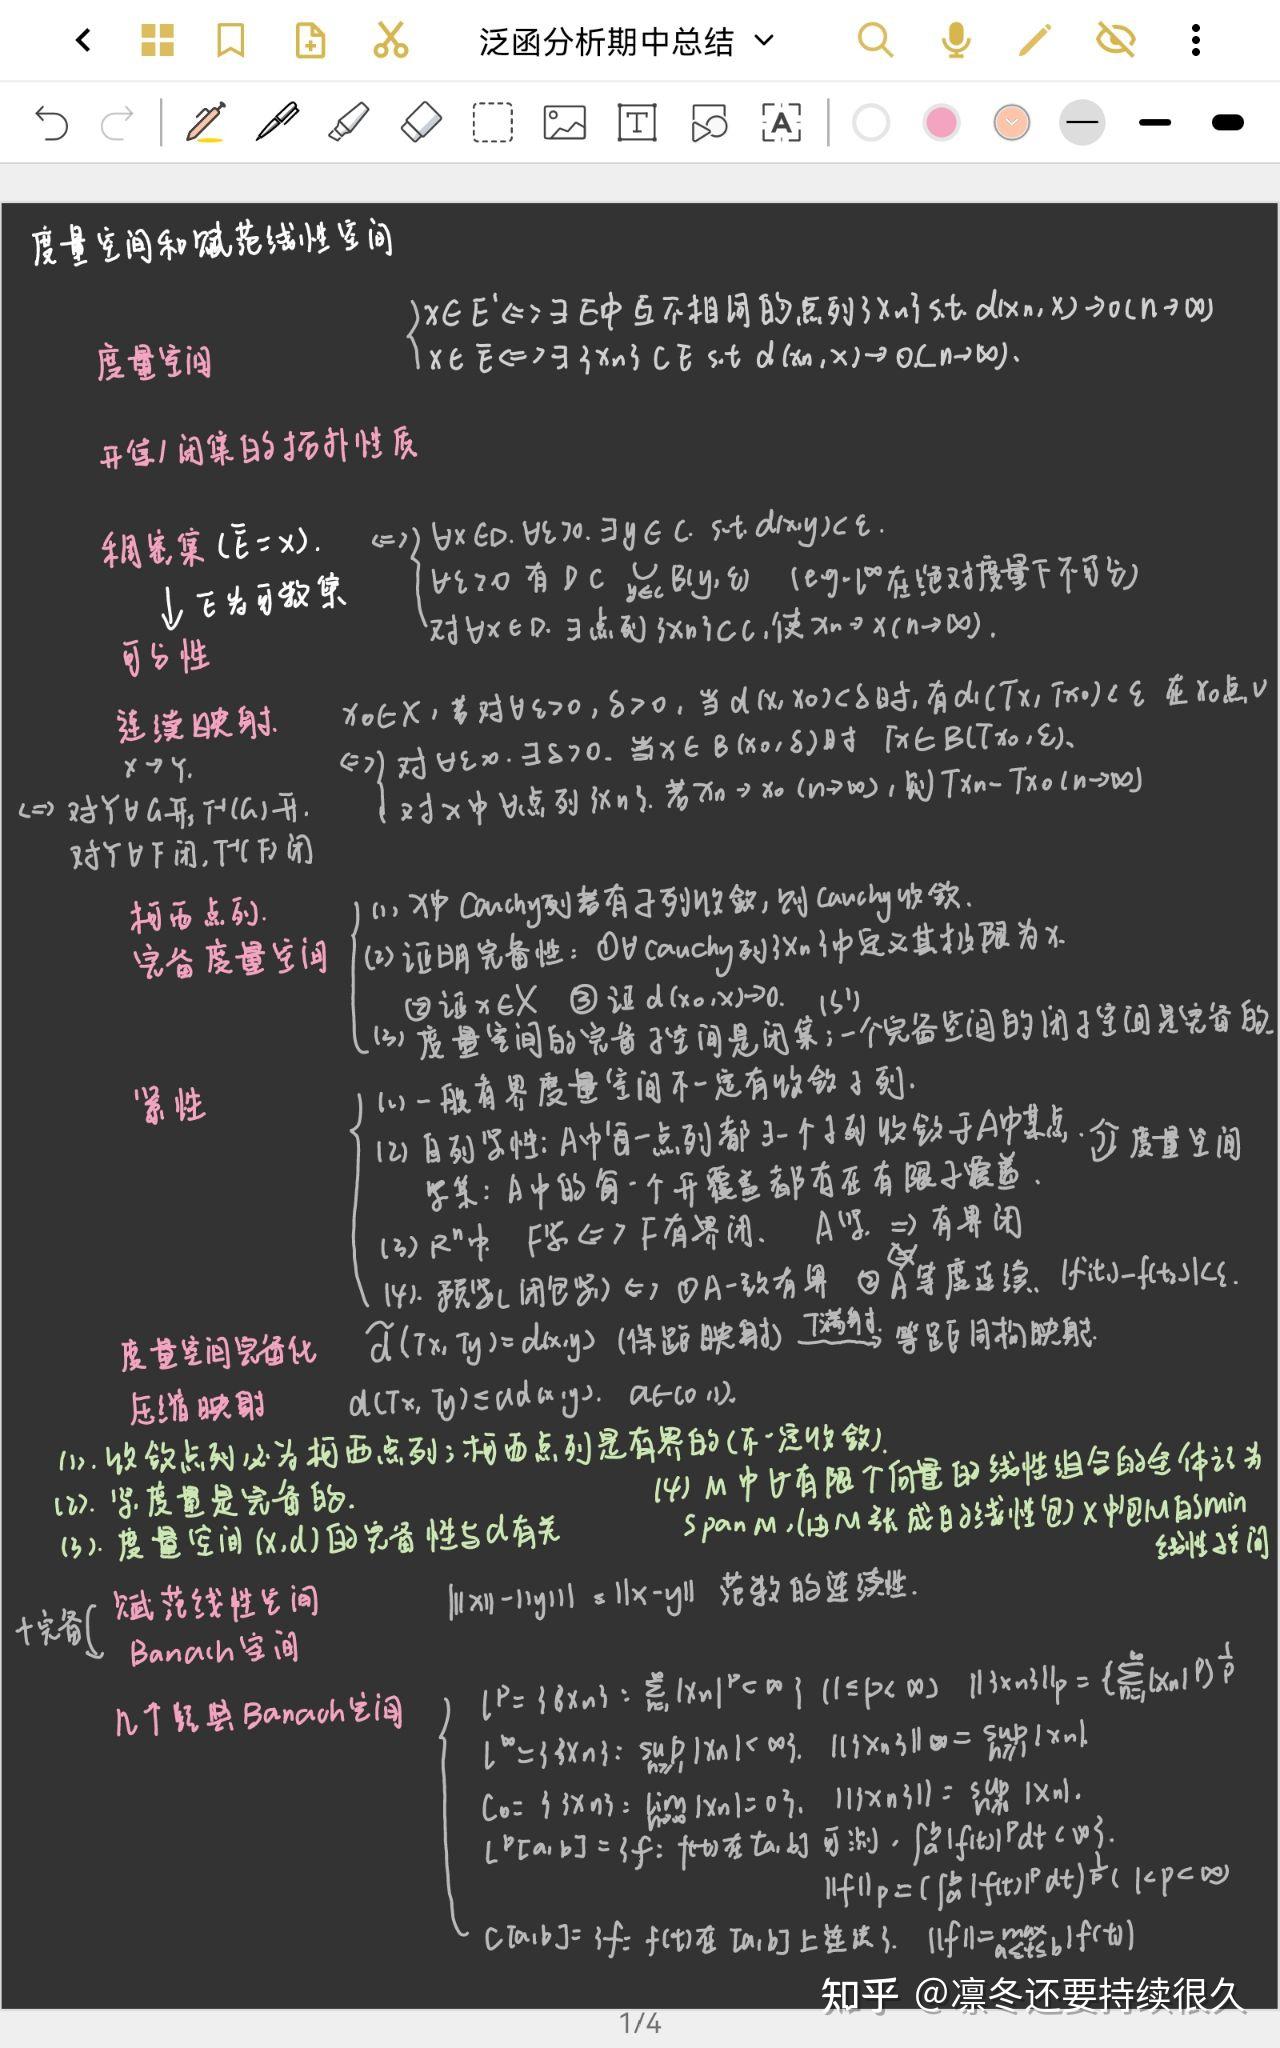 泛函分析期中总结
度量空间和赋范线性空间
度量空间
x∈E'<=>∃E中互不相同的点列{xn}s.t. d(xn,x)→0(n→∞)
x∈Ē<=>∃{xn}⊂E s.t d(xn,x)→0(n→∞).
开集/闭集的拓扑性质
稠密集(Ē=X).
↓E为可数集
可分性
<=> ∀x∈D.∀ε>0.∃y∈C. s.t.d(x,y)<ε.
∀ε>0 有 D⊂ ∪y∈C B(y,ε) (eg.l^∞在绝对度量下不可分)
对∀x∈D.∃点列{xn}⊂C,使xn→x(n→∞).
连续映射.
X→Y.
x0∈X,若对∀ε>0,δ>0,当d(x,x0)<δ时,有d1(Tx,Tx0)<ε 在x0点
<=> 对∀ε>0.∃δ>0.当x∈B(x0,δ)时 Tx∈B(Tx0,ε)、
对X中∀点列{xn}.若xn→x0(n→∞),则Txn→Tx0(n→∞)
<=> 对Y∀G开,T⁻¹(G)开.
对Y∀F闭,T⁻¹(F)闭
柯西点列.
完备度量空间
(1). X中Cauchy列若有子列收敛,则Cauchy收敛.
(2)证明完备性:①∀Cauchy列{xn}中定义其极限为x.
②证x∈X ③证d(x0,x)→0.
(3)度量空间的完备子空间是闭集;一个完备空间的闭子空间是完备的
紧性
(1)一般有界度量空间不一定有收敛子列.
(2)自列紧性:A中每一点列都∃一个子列收敛于A中某点. 度量空间
紧集:A中的每一个开覆盖都存在有限子覆盖.
(3)Rⁿ中. F紧<=>F有界闭. A紧.=>有界闭
(4).预紧(闭包紧)<=>①A一致有界 ②A等度连续.|f(t1)-f(t2)|<ε.
度量空间完备化
d̃(Tx,Ty)=d(x,y) (保距映射) T满射→ 等距同构映射.
压缩映射
d(Tx,Ty)≤ad(x,y). a∈(0,1).
(1).收敛点列必为柯西点列;柯西点列是有界的(不一定收敛).
(2).紧度量是完备的.
(3).度量空间(X,d)的完备性与d有关
(4)M中∀有限个向量的线性组合的全体记为
spanM,(由M张成的线性包)X中包M的smin
线性子空间
赋范线性空间
|||x||-||y|||≤||x-y|| 范数的连续性.
+完备
Banach空间
几个经典Banach空间
l^p={{xn}:∑n=1^∞|xn|^p<∞}(1≤p<∞) ||{xn}||p={∑n=1^∞|xn|^p)^1/p
l^∞={{xn}:sup n≥1|xn|<∞}. ||{xn}||∞=sup n≥1|xn|.
C0={{xn}:lim n→∞|xn|=0}. ||{xn}||=sup n≥1|xn|.
L^p[a,b]={f:f(t)在[a,b]可测,∫a^b|f(t)|^pdt<∞}.
||f||p=(∫a^b|f(t)|^pdt)^1/p(1<p<∞)
C[a,b]={f:f(t)在[a,b]上连续}. ||f||=max a≤t≤b|f(t)|
知乎 @凛冬还要持续很久
1/4